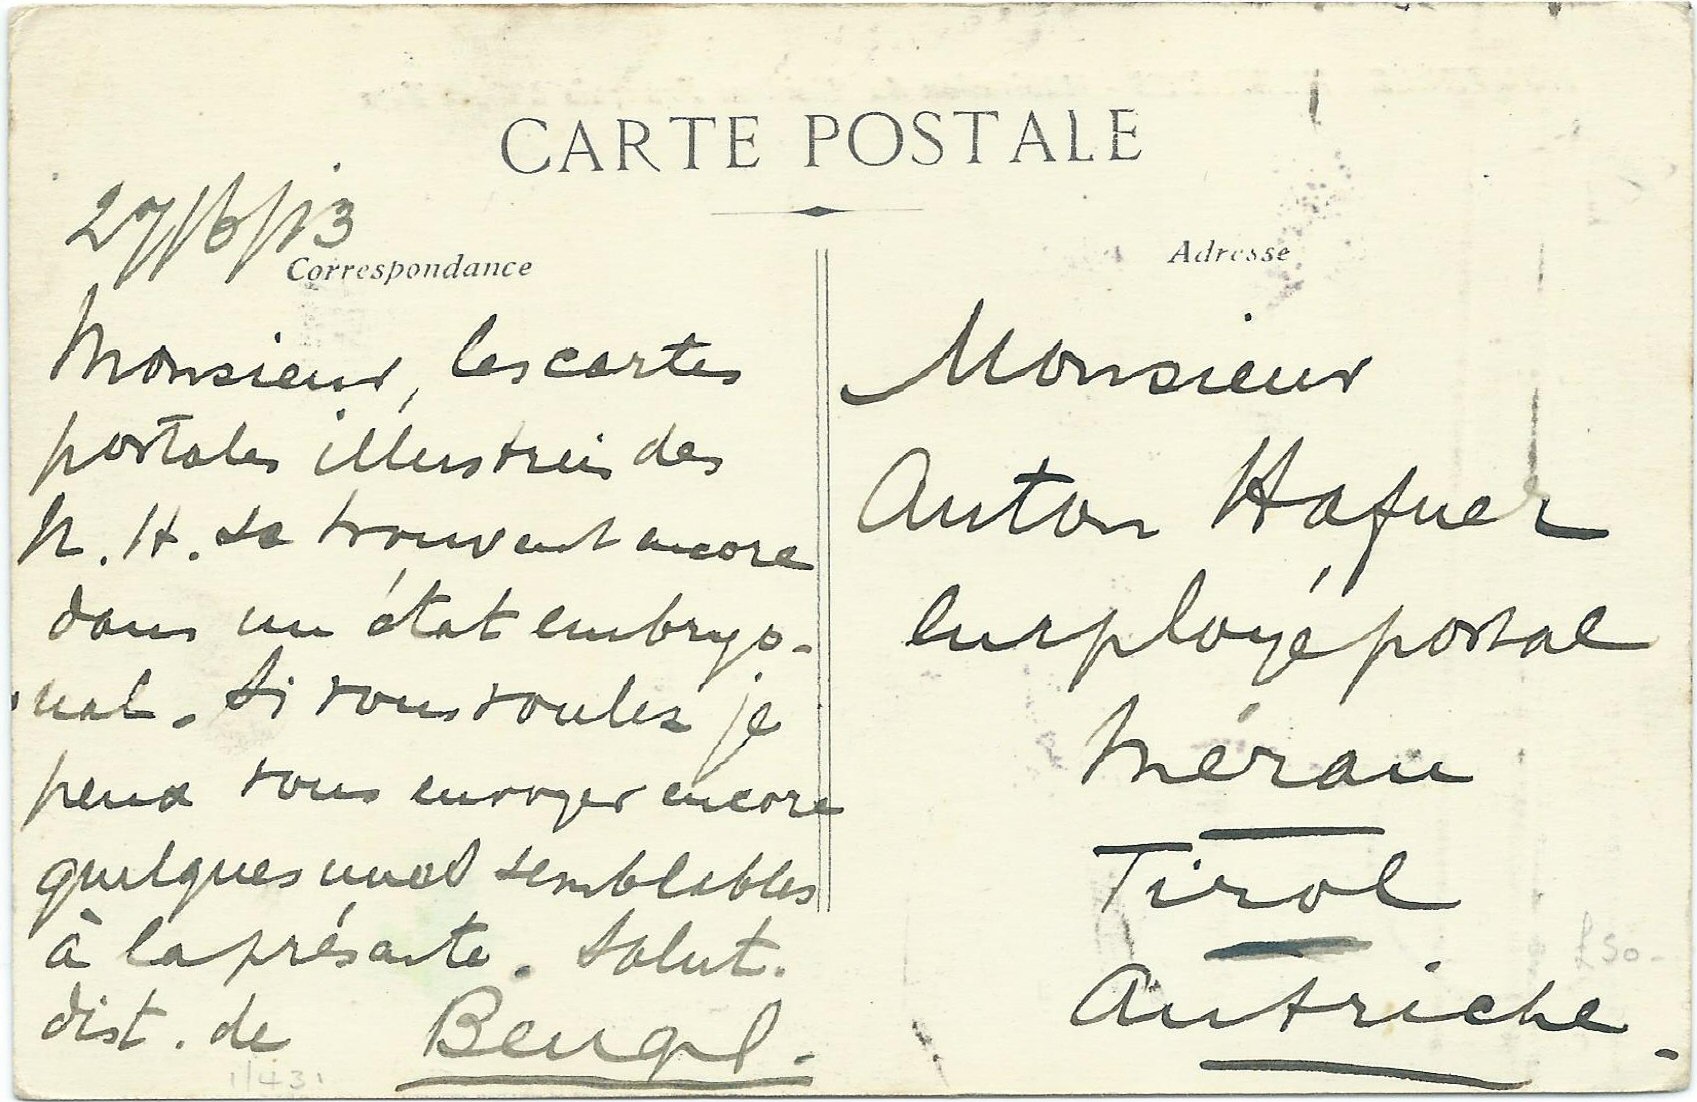 CARTE POSTALE
27/6/13
Correspondance
Monsieur, les cartes
postales illustrées des
N. H. se trouvent encore
dans un état embryo-
nal. Si vous voulez je
peux vous envoyer encore
quelques unes semblables
à la présante. Salut.
dist. de
Adresse
Monsieur
Anton Hafner
employé postal
Méran
Tirol
Autriche.
£50-
1/431